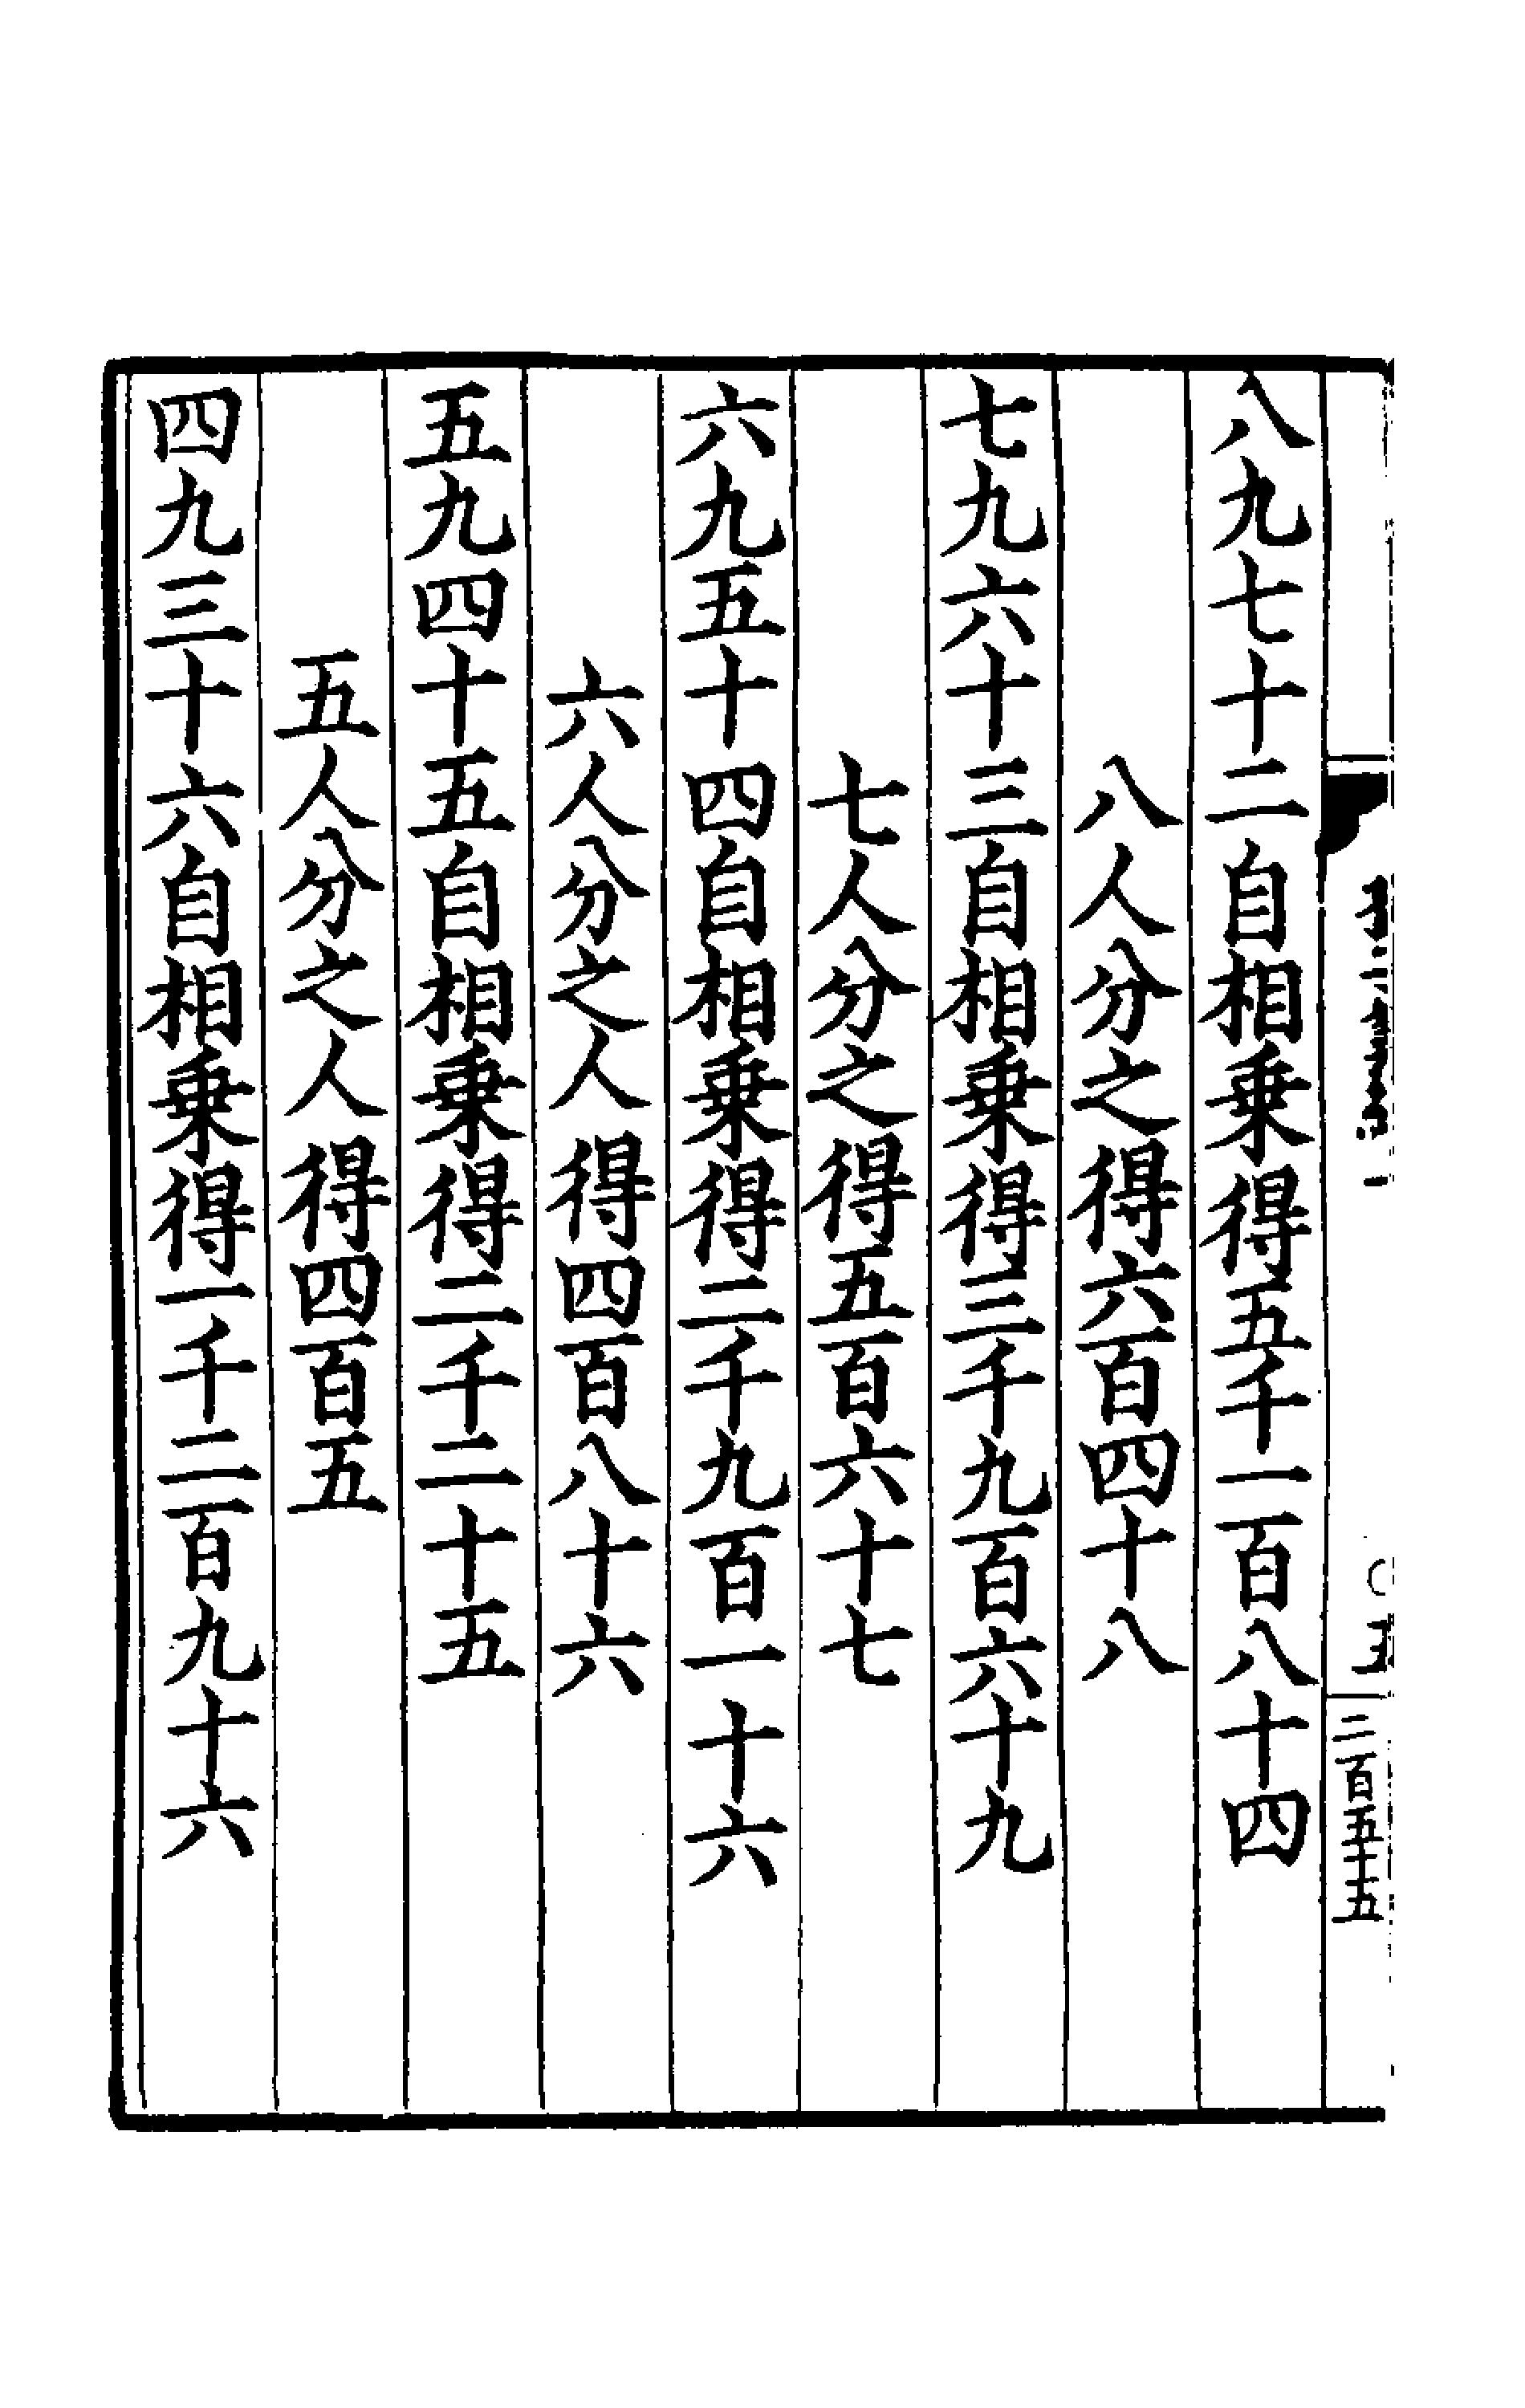 八九七十二自相乗得五千一百八十四
八人分之得六百四十八
七九六十三自相乗得三千九百六十九
七人分之得五百六十七
六九五十四自相乗得二千九百一十六
六人分之人得四百八十六
五九四十五自相乗得二千二十五
五人分之人得四百五
四九三十六自相乗得一千二百九十六
三百五十五